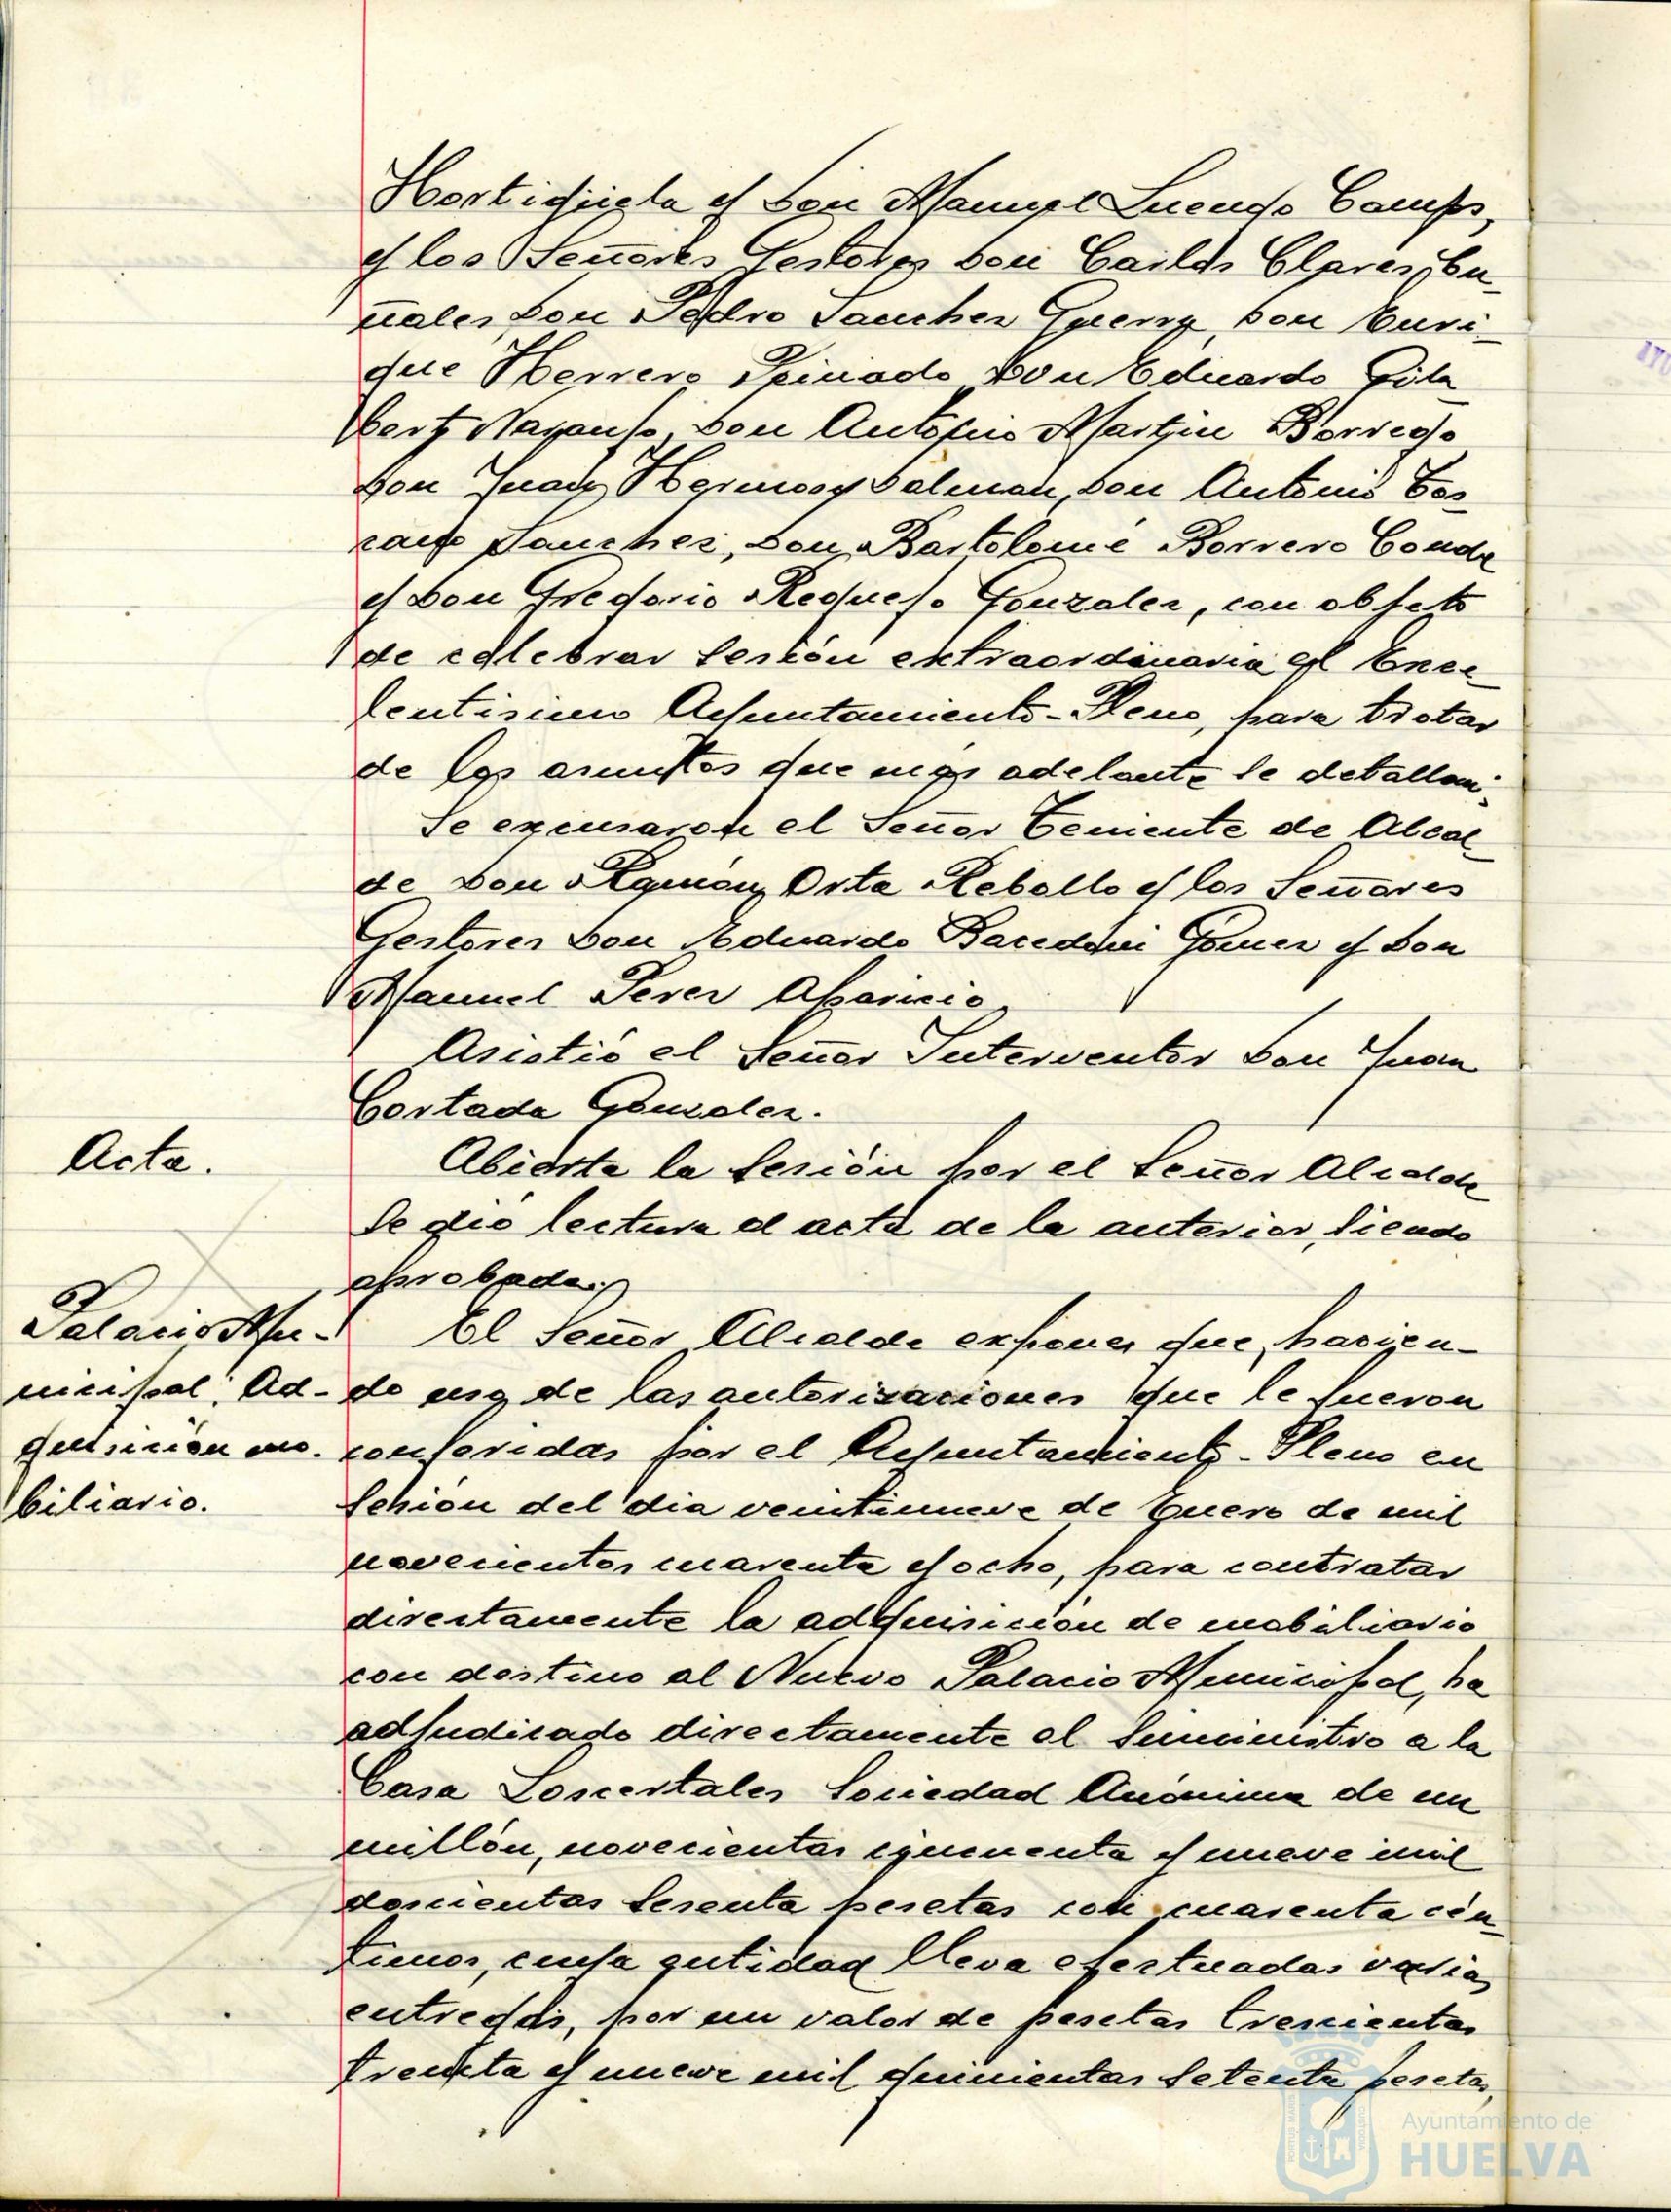 Hortigüela y Don Manuel Luengo Camps,
y los Señores Gestores Don Carlos Clares Bu-
ñales, Don Pedro Sanchez Guerra, Don Enri-
que Herrero Peinado, Don Eduardo Gila
bert Naranjo, Don Antonio Martin Borrego
Don Juan Hermosa Dalman, Don Antonio Tos
cano Sanchez, Don Bartolomé Borrero Conde
y Don Gregorio Requejo Gonzalez, con objeto
de celebrar sesión extraordinaria el Exce
lentisimo Ayuntamiento-Pleno, para tratar
de los asuntos que mas adelante se detallan.
Se excusaron el Señor Teniente de Alcal
de Don Ramón Orta Rebollo y los Señores
Gestores Don Eduardo Gomez y Don
Manuel Perez Aparicio.
Asistió el Señor Interventor Don Juan
Cortada Gonzalez.
Acta.
Abierta la sesión por el Señor Alcalde
se dió lectura al acta de la anterior, siendo
aprobada.
Palacio Mu-
nicipal. Ad-
quisición mo.
biliario.
El Señor Alcalde expone que, hacien-
do uso de las autorizaciones que le fueron
conferidas por el Ayuntamiento-Pleno en
sesión del dia veintinueve de Enero de mil
novecientos cuarenta y ocho, para contratar
directamente la adquisición de mobiliario
con destino al Nuevo Palacio Municipal, ha
adjudicado directamente el suministro a la
Casa Loscertales Sociedad Anónima de un
millón, novecientas cincuenta y nueve mil
doscientas sesenta pesetas con cuarenta cén
timos, cuya entidad lleva efectuadas varias
entregas, por un valor de pesetas trescientas
treinta y nueve mil quinientas setenta pesetas,
Ayuntamiento de
HUELVA